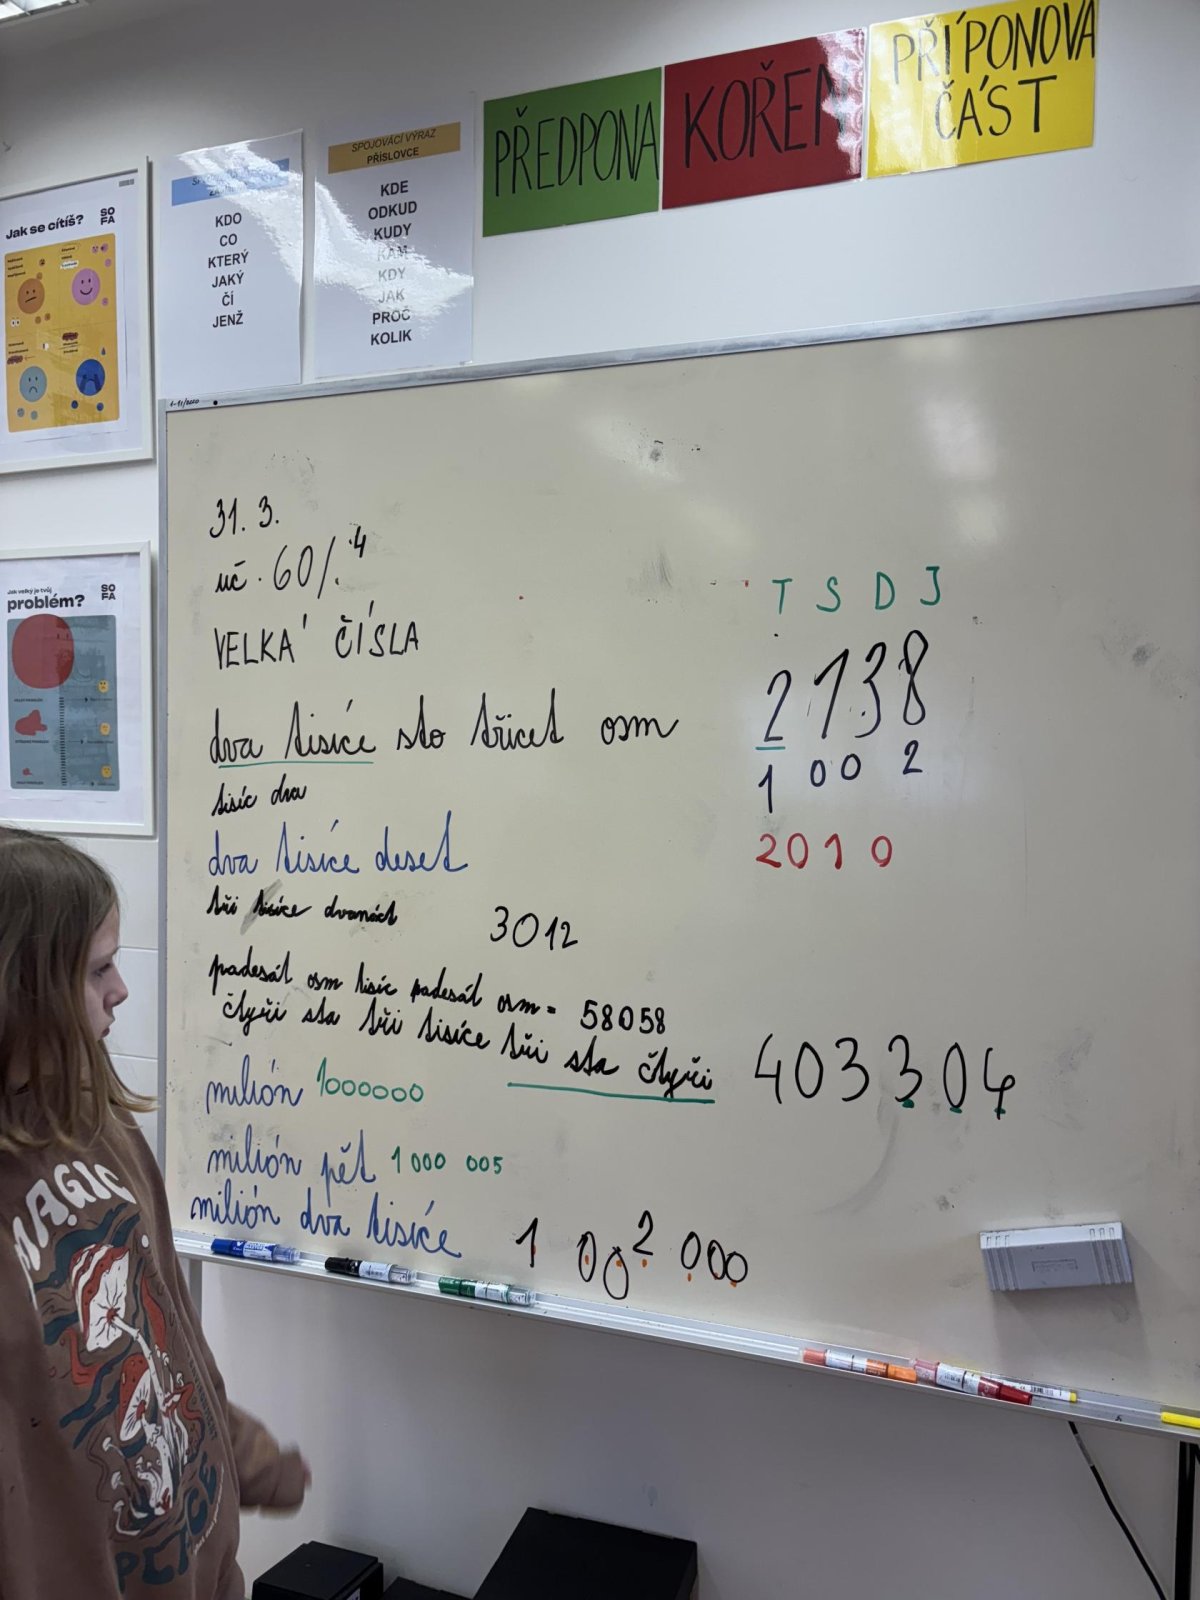 PŘEDPONA
KOŘEN
PŘÍPONOVÁ
ČÁST
SPOJOVACÍ VÝRAZ
PŘÍSLOVCE
KDE
ODKUD
KUDY
KAM
KDY
JAK
PROČ
KOLIK
KDO
CO
KTERÝ
JAKÝ
ČÍ
JENŽ
Jak se cítíš?
SO
FA
Jak velký je tvůj
problém?
SO
FA
31. 3.
uč. 60/.4
VELKÁ ČÍSLA
T S D J
dva tisíce sto třicet osm 2138
tisíc dva 1 00 2
dva tisíce deset 2010
tři tisíce dvanáct 3012
padesát osm tisíc padesát osm = 58058
čtyři sta tři tisíce tři sta čtyři 403304
milión 1000000
milión pět 1 000 005
milión dva tisíce 1 002 000
MAGIC